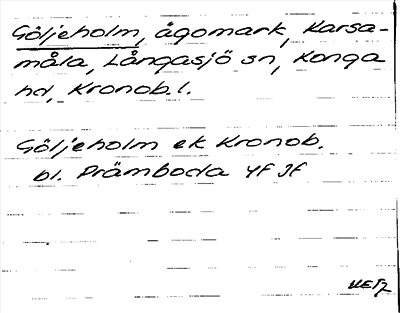 Göljeholm, ägomark, Karsa-
måla, Långasjö sn, Konga
hd, Kronob. l.
Göljeholm ek Kronob.
bl. Prämboda 4f Jf